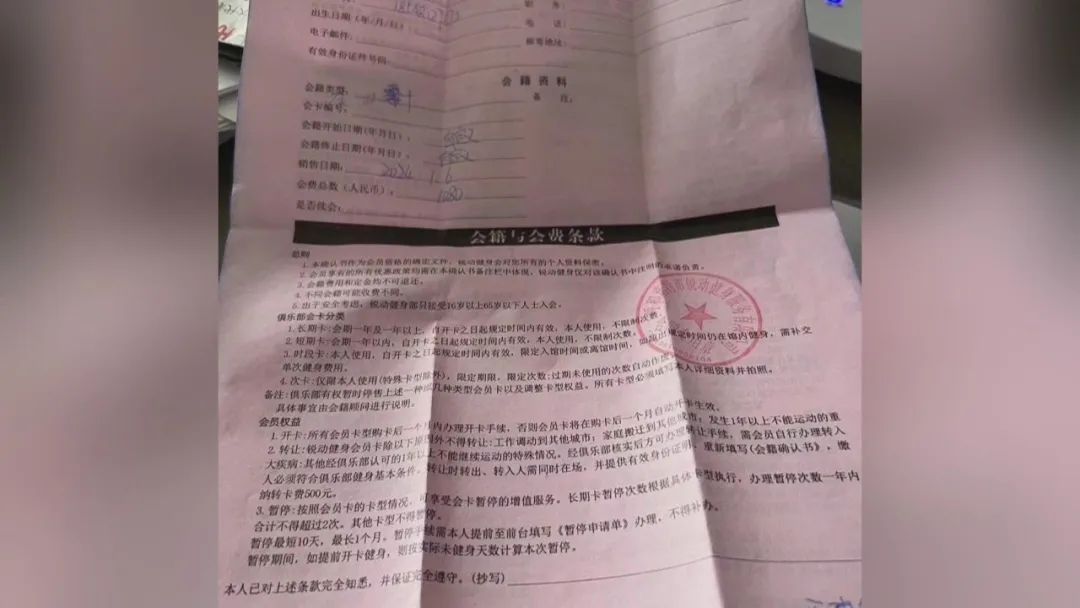 出生日期(年/月/日):
电子邮件:
有效身份证件号码:
职 务:
电 话:
邮寄地址:
会 籍 资 料
会籍类型:
备 注:
会卡编号:
会籍开始日期(年月日):
会籍终止日期(年月日):
销售日期: 2024 1.6
会费总数(人民币): 1080
是否续会:
会籍与会费条款
总则
1.本确认书作为会员资格的确定文件,锐动健身会对您所有的个人资料保密。
2.会员享有的所有优惠政策均需在本确认书备注栏中体现,锐动健身仅对该确认书中注明的承诺负责。
3.会籍费用和定金均不可退还。
4.不同会籍可能收费不同。
5.出于安全考虑,锐动健身部只接受16岁以上65岁以下人士入会。
俱乐部会卡分类
1.长期卡:会期一年及一年以上,自开卡之日起规定时间内有效,本人使用,不限制次数。
2.短期卡:会期一年以内,自开卡之日起规定时间内有效,本人使用,不限制次数。
3.时段卡:本人使用,自开卡之日起规定时间内有效,限定入馆时间或离馆时间,如超出规定时间仍在馆内健身,需补交
单次健身费用。
4.次卡:仅限本人使用(特殊卡型除外),限定期限,限定次数;过期未使用的次数自动作废
备注:俱乐部有权暂时停售上述一种或几种类型会员卡以及调整卡型权益。所有卡型必须填写本人详细资料并拍照。
具体事宜由会籍顾问进行说明。
会员权益
1.开卡:所有会员卡型购卡后一个月内办理开卡手续,否则会员卡将在购卡后一个月自动开卡生效。
2.转让:锐动健身会员卡除以下原因外不得转让:工作调动到其他城市;家庭搬迁到其他城市;发生1年以上不能运动的重
大疾病;其他经俱乐部认可的1年以上不能继续运动的特殊情况。经俱乐部核实后方可办理转让手续,需会员自行办理转入
人必须符合俱乐部健身基本条件。转让时转出、转入人需同时在场,并提供有效身份证明,重新填写《会籍确认书》,缴
纳转卡费500元。
3.暂停:按照会员卡的卡型情况,可享受会卡暂停的增值服务。长期卡暂停次数根据具体卡型执行,办理暂停次数一年内
合计不得超过2次。其他卡型不得暂停。
暂停最短10天,最长1个月。暂停手续需本人提前至前台填写《暂停申请单》办理,不得补办。
暂停期间,如提前开卡健身,则按实际未健身天数计算本次暂停。
本人已对上述条款完全知悉,并保证完全遵守。(抄写)